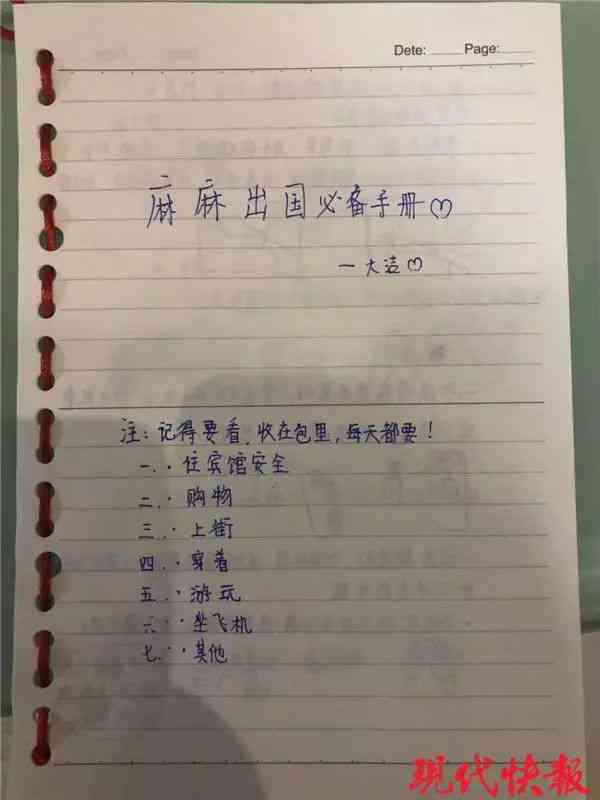 Dete: Page:
麻麻出国必备手册♡
—大洁♡
注:记得要看,收在包里,每天都要!
一.·住宾馆安全
二.·购物
三.·上街
四.·穿着
五.·游玩
六.·坐飞机
七.·其他
现代快報